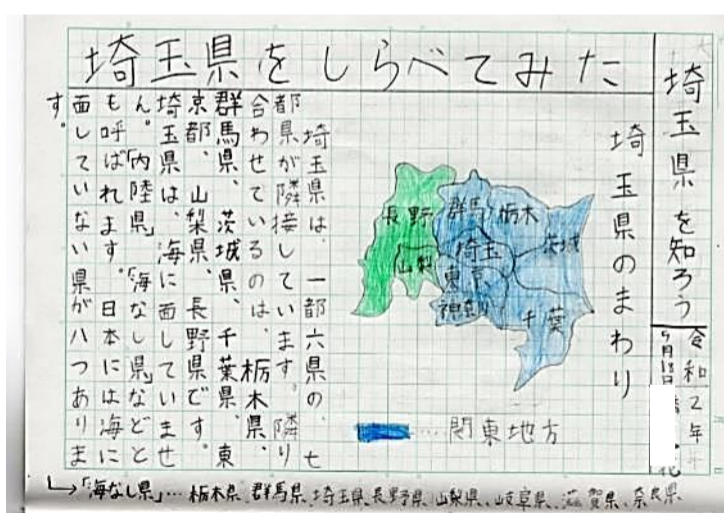 埼玉県をしらべてみた
埼玉県を知ろう
令和2年
5月18日
埼玉県のまわり
長野
群馬
栃木
茨城
埼玉
山梨
東京
神奈川
千葉
……関東地方
埼玉県は、一都六県の、七
都県が隣接しています。隣り
合わせているのは、栃木県、
群馬県、茨城県、千葉県、東
京都、山梨県、長野県です。
埼玉県は、海に面していませ
ん。「内陸県」「海なし県」などと
も呼ばれます。日本には海に
面していない県が八つありま
す。
→「海なし県」…栃木県、群馬県、埼玉県、長野県、山梨県、岐阜県、滋賀県、奈良県